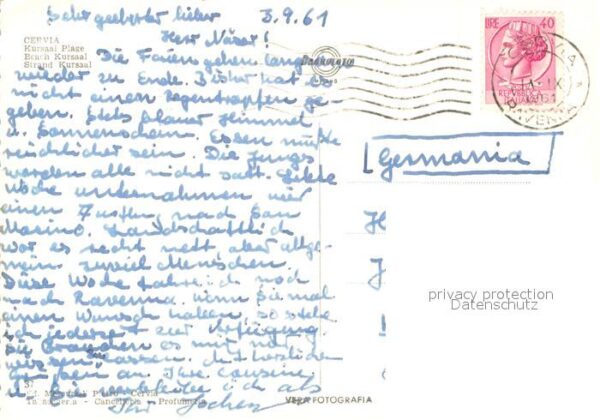 Sehr geehrter lieber
3.9.61
Herr Näser!
CERVIA
Kursaal Plage
Beach Kursaal
Strand Kursaal
Die Ferien gehen langsam
wieder zu Ende. Bisher hat es
nicht einen Regentropfen ge-
geben. Stets blauer Himmel
u. Sonnenschein. Essen müßte
reichlicher sein. Die Jungs
werden alle nicht satt. Letzte
Woche unternahmen wir
einen Ausflug nach San
Marino. Landschaftlich
war es recht nett aber allge-
mein zuviel Menschen.
Diese Woche fahre ich noch
nach Ravenna. Wenn Sie mal
einen Wunsch haben so stehe
ich jederzeit zur Verfügung.
Sie brauchen es mir nur
wissen lassen. Mit herzlichen
an Ihre Cousine
u. Sie verbleibe ich als
Ihr Jochen
LIRE 40
REPVBBLICA
ITALIANA
RAVENNA
Germania
H
J
privacy protection
Datenschutz
37
Cervia
Profumeria
VERA FOTOGRAFIA